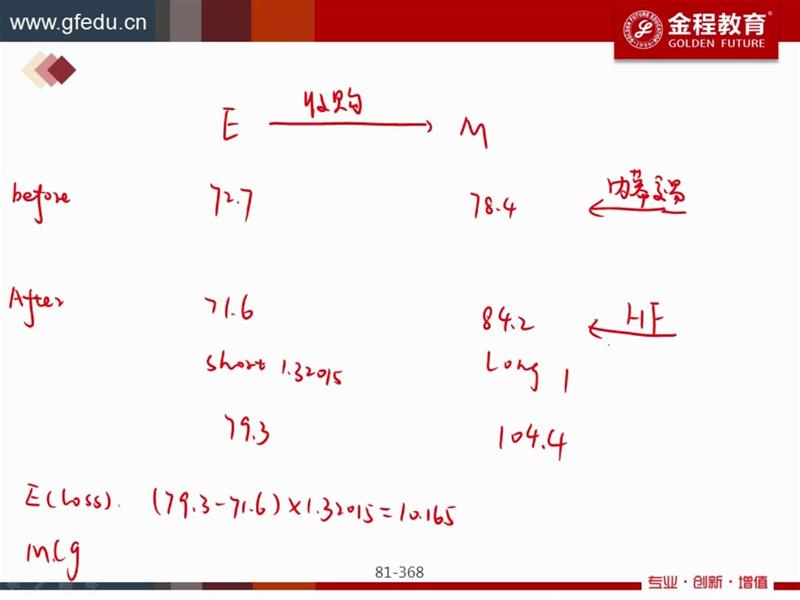 www.gfedu.cn
金程教育
GOLDEN FUTURE
E 收购 M
before 72.7 78.4 内幕交易
After 71.6 84.2 HF
short 1.32015 Long 1
79.3 104.4
E(Loss). (79.3-71.6)×1.32015=10.165
M(g
81-368
专业·创新·增值